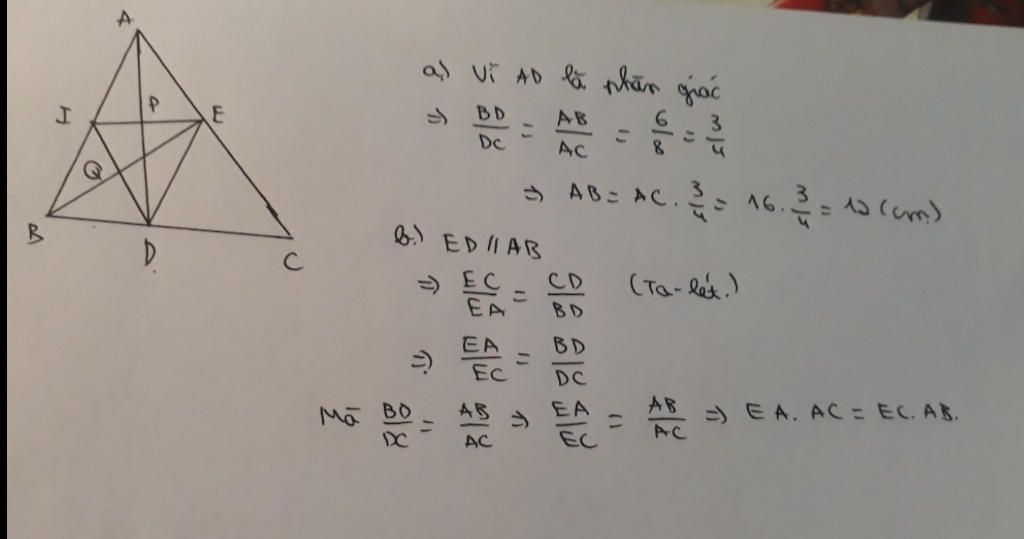 A
I
P
E
Q
B
D
C
a) Vì AD là phân giác
⇒ BD/DC = AB/AC = 6/8 = 3/4
⇒ AB = AC . 3/4 = 16 . 3/4 = 12 (cm)
b) ED // AB
⇒ EC/EA = CD/BD (Ta-lét.)
⇒ EA/EC = BD/DC
Mà BD/DC = AB/AC ⇒ EA/EC = AB/AC ⇒ EA. AC = EC. AB.